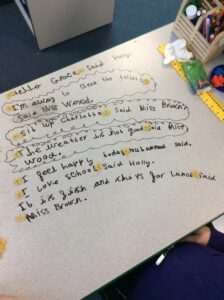 Hello Grace said Hony.
I'm going to close the
said Miss Wood.
Sit up Charlotte said Miss Brown
The weather is not good said Miss
Wood.
I feel happy today Muhammad said.
I love school said Hony.
It is fish and chips for lunch said
Miss Brown.